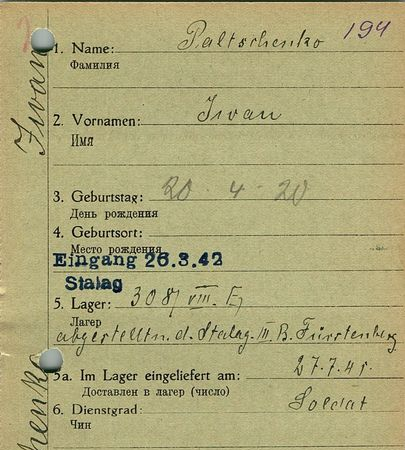 194
1. Name: Paltschenko
Фамилия
2. Vornamen: Iwan
Имя
3. Geburtstag: 20 - 4 - 20
День рождения
4. Geburtsort:
Место рождения
Eingang 26.3.42
Stalag
5. Lager: 308/VIII. E,
Лагер
abgestellt n. d. Stalag. III. B. Fürstenberg
5a. Im Lager eingeliefert am: 27.7.41.
Доставлен в лагер (число)
6. Dienstgrad: Soldat
Чин
Iwan
henko